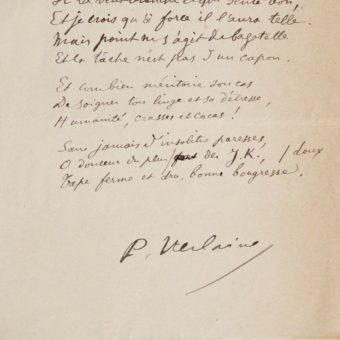 Et je crois qu'à force il l'aura telle.
Mais point ne s'agit de bagatelle
Et la tâche n'est pas d'un capon.
Et combien méritoire son cas
De soigner ton linge et sa détresse,
Humanité, crasses et cacas!
Sans jamais d'insolites paresses,
O douceur du plus des J.K., / doux
Trape ferme et dru, bonne bougresse.
P. Verlaine